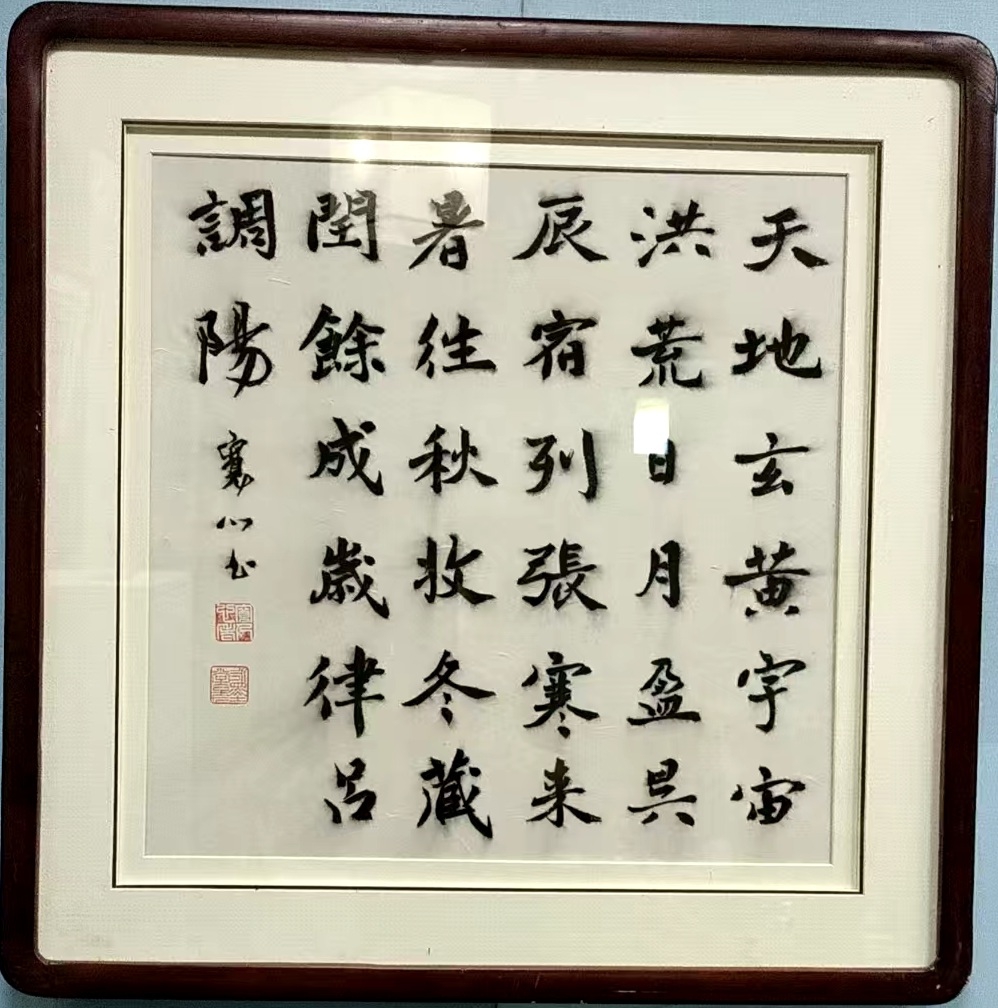 天地玄黄宇宙
洪荒日月盈昃
辰宿列張寒来
暑往秋收冬藏
閏餘成歲律呂
調陽
心书